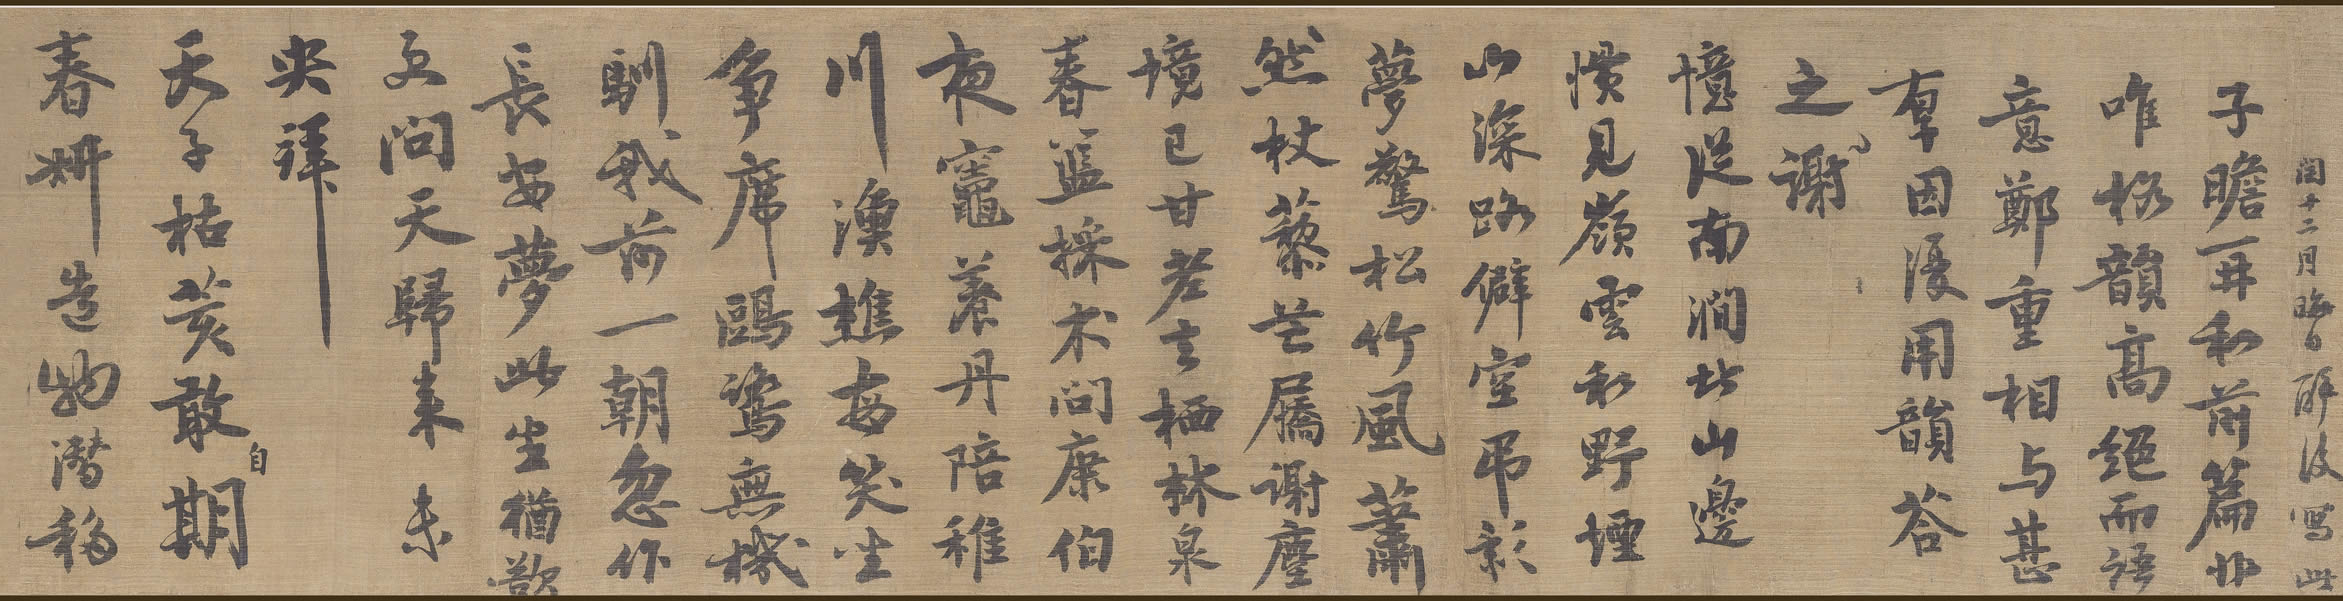 閏十二月晦日醉後寫此
子瞻再和前篇非
唯格韻高絕而語
意鄭重相与甚
厚因復用韻荅
之謝
憶從南澗北山邊
慣見嶺雲和野煙
山深路僻空弔影
夢驚松竹風蕭
然杖藜芒屩謝塵
境已甘老去栖林泉
春籃採朮問康伯
夜竈養丹陪稚
川漁樵每笑坐
争席鷗鷺無機
馴我前一朝忽作
長安夢此生猶欲
更問天歸来未
央拜
天子枯荄敢自期
春妍造物潛移